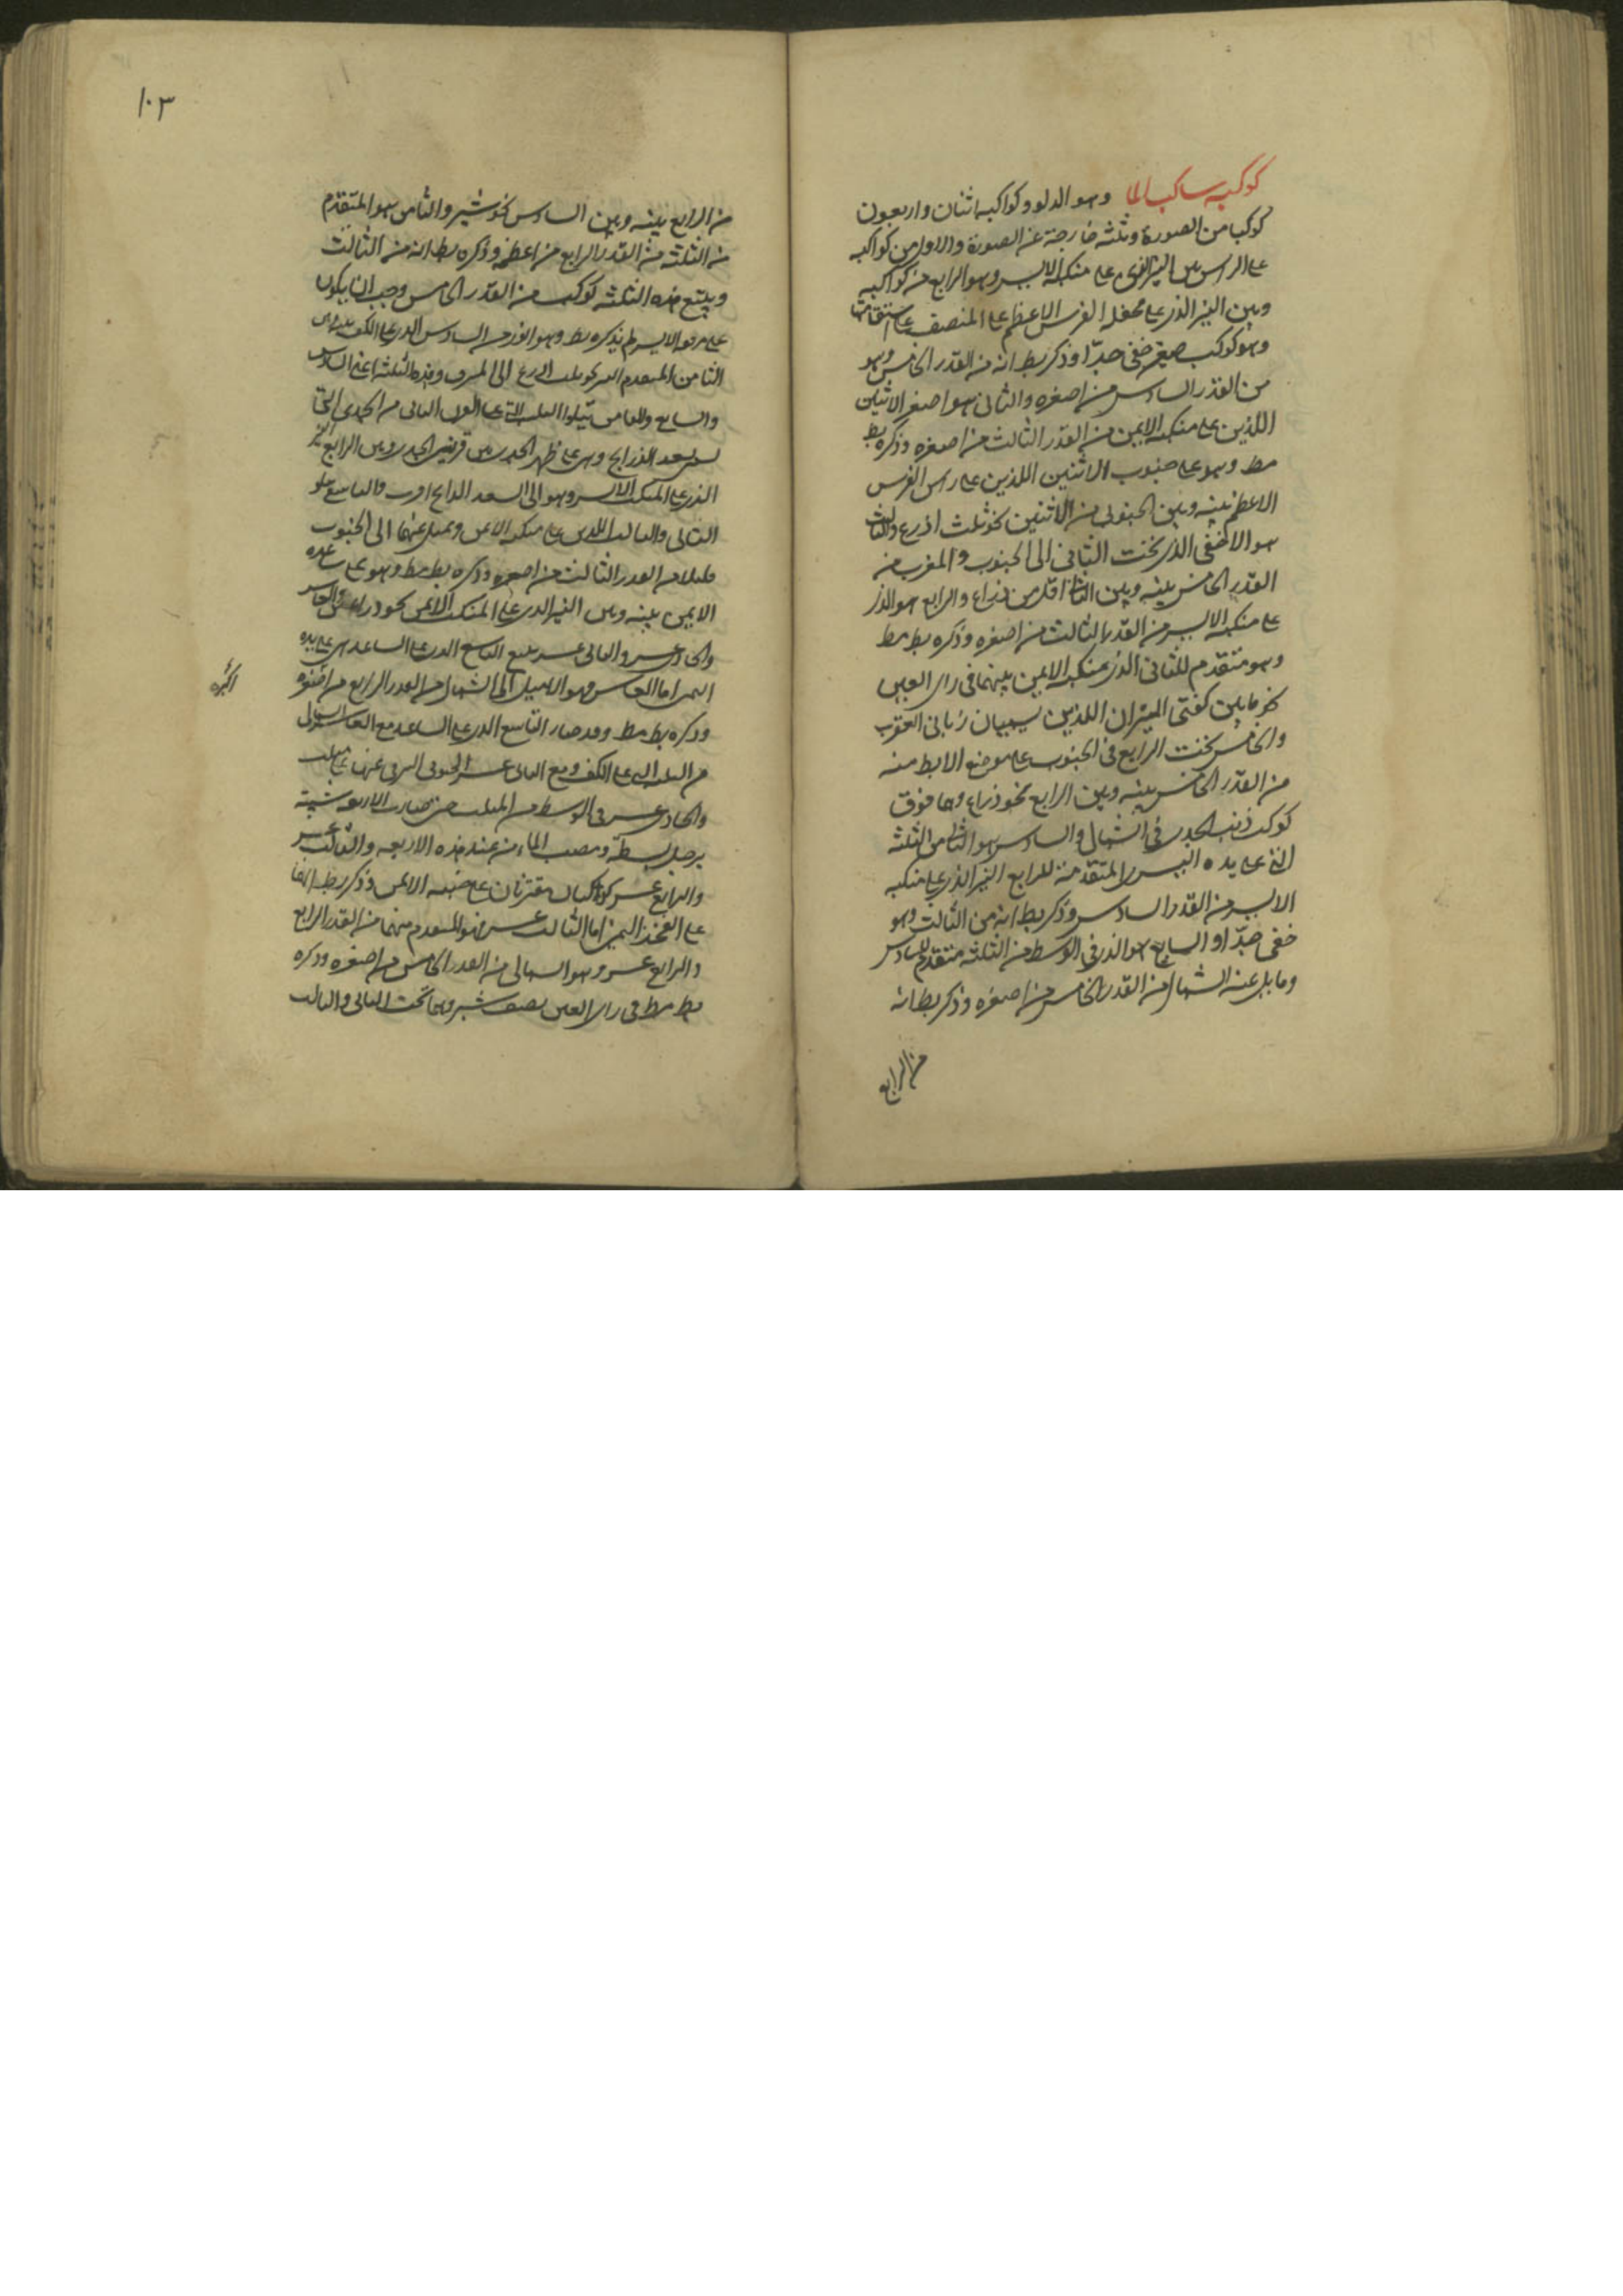 كوكبه ساكب الما وهو الدلو وكواكبه اثنان واربعون
كوكبا من الصورة وثلثه خارجة عن الصورة والاول من كواكبه
على الراس بين النير الذى على منكبه الايسر وهو الرابع من كواكبه
وبين النير الذى على جحفله الفرس الاعظم على المنصف على استقامة
وهو كوكب صغير خفى جدّا وذكر بط انه من القدر الخامس وهو
من القدر السادس من اصغره والثانى هو اصغر الاثنين
اللذين على منكبه الايمن من القدر الثالث من اصغره وذكره بط
مط وهو على جنوب الاثنين اللذين على راس الفرس
الاعظم بينه وبين الجنوبى من الاثنين نحو ثلث اذرع والثالث
هو الاخفى الذى تحت الثانى الى الجنوب والمغرب من
القدر الخامس بينه وبين الثانى اقل من ذراع والرابع هو الذى
على منكبه الايسر من القدر الثالث من اصغره وذكره بط مط
وهو متقدم للثانى الذى بمنكبه الايمن بينهما فى راى العين
نحو ما بين كفتى الميزان اللذين يسميان زبانى العقرب
والخامس تحت الرابع فى الجنوب على موضع الابط منه
من القدر الخامس بينه وبين الرابع نحو ذراع وهما فوق
كوكب ذنب الجدى فى الشمال والسادس هو الثالى من الثلثه
التى على يده اليسرى المتقدمة للرابع النير الذى على منكبه
الايسر من القدر السادس وذكر بط انه من الثالث وهو
خفى جدّا والسابع هو الذى فى الوسط من الثلثه متقدم للسادس
ومايل عنه الى الشمال من القدر الخامس من اصغره وذكر بط انه
من الرابع
١٠٣
من الرابع بينه وبين السادس نحو شبر والثامن هو المتقدم
من الثلثه من القدر الرابع من اعظمه وذكره بط انه من الثالث
ويتبع هذه الثلثه كوكب من القدر الخامس وجب ان يكون
على مرفقه الايسر لم يذكره بط وهو انور من السادس الذى على الكف
الثامن المتقدم نحو ثلث اذرع الى المشرق وهذه الثلثه اعنى السادس
والسابع والثامن تتلوا الثلثه التى على القرن الثانى من الجدى التى
تسمى سعد الذابح وهى على ظهر الجدى بين قرنى الجدى وبين الرابع النير
الذى على المنكب الايسر وهو الى السعد الذابح اقرب والتاسع يتلو
الثانى والثالث اللذين على منكبه الايمن ويميل عنهما الى الجنوب
قليلا من القدر الثالث من اصغره وذكره بط مط وهو على ساعده
الايمن بينه وبين النير الذى على المنكب الايمن نحو ذراعين والعاشر
والحادى عشر والثانى عشر تتبع التاسع الذى على الساعد هى على يده
اليمنى اما العاشر فهو الاميل الى الشمال من القدر الرابع من اصغره
اكبره
وذكره بط مط وقد صار التاسع الذى على الساعد مع العاشر الشمالى
من الثلثه التى على الكف ومع الثانى عشر الجنوبى الشرقى عنها على مثلث
والحادى عشر فى الوسط من المثلث حتى صارت الاربعه شبيه
برجل بطة ومصب الماء من عند هذه الاربعه والثالث عشر
والرابع عشر كوكبان مقترنان على جنبه الايمن وذكر بط انهما
على الفخذ اليمنى اما الثالث عشر فهو المتقدم منهما من القدر الرابع
والرابع عشر وهو التالى من القدر الخامس من اصغره وذكره
بط مط بينهما فى راى العين نصف شبر وهما تحت الثانى والثالث